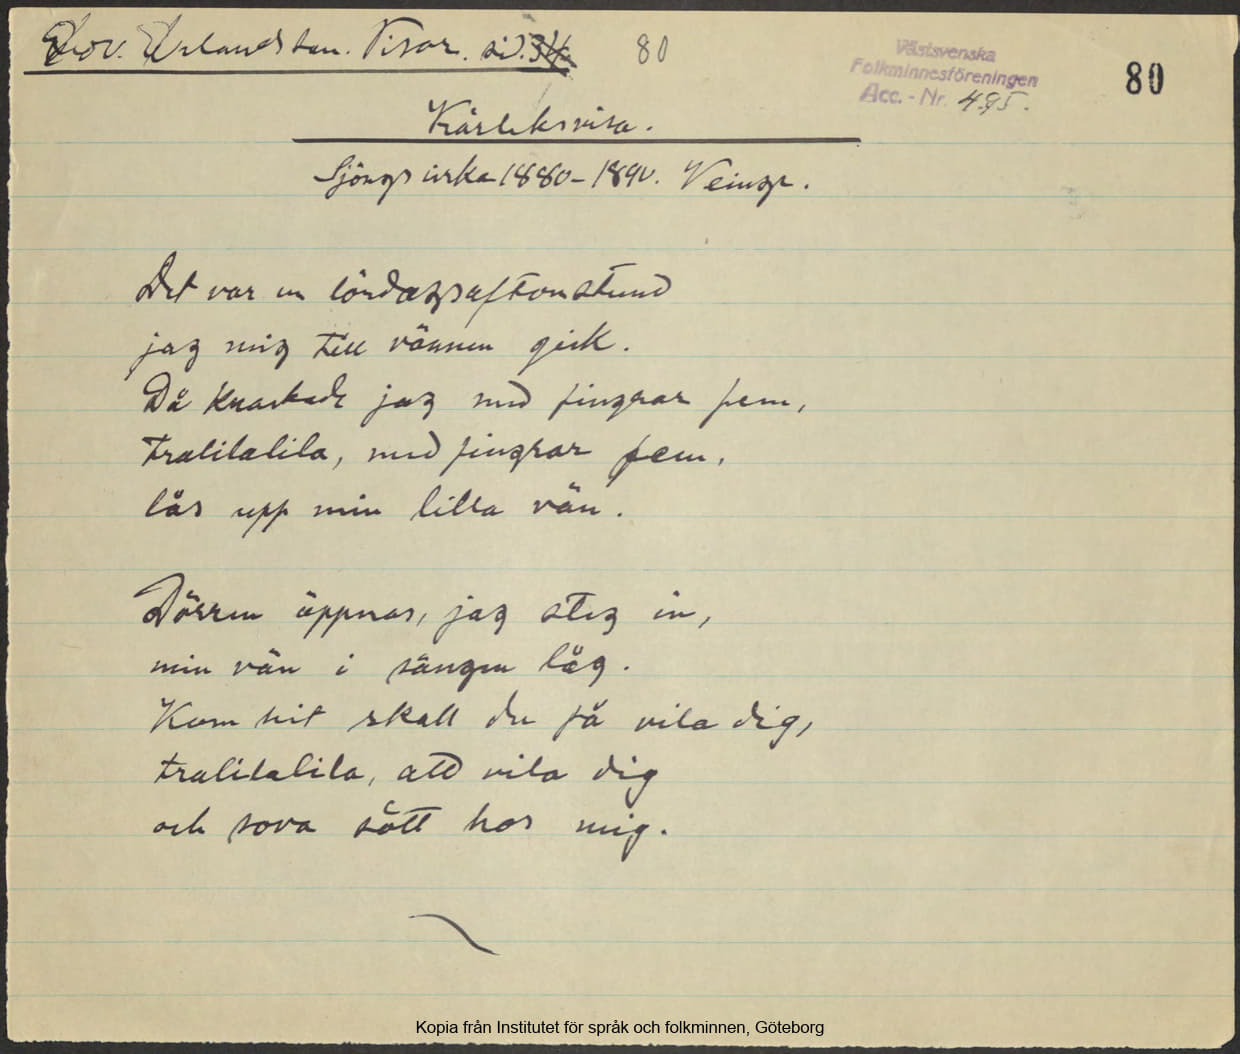 Erlandsson. Visor. sid. 34 80
Västsvenska
Folkminnesföreningen
Acc. - Nr. 495.
80
Kärleksvisa.
Sjöngs cirka 1880-1890. Veinge.
Det var en lördagsaftonstund
jag mig till vännen gick.
Då knackade jag med fingrar fem,
tralilalila, med fingrar fem,
lås upp min lilla vän.
Dörren öppnas, jag steg in,
min vän i sängen låg.
Kom hit skall du få vila dig,
tralilalila, att vila dig
och sova sött hos mig.
Kopia från Institutet för språk och folkminnen, Göteborg